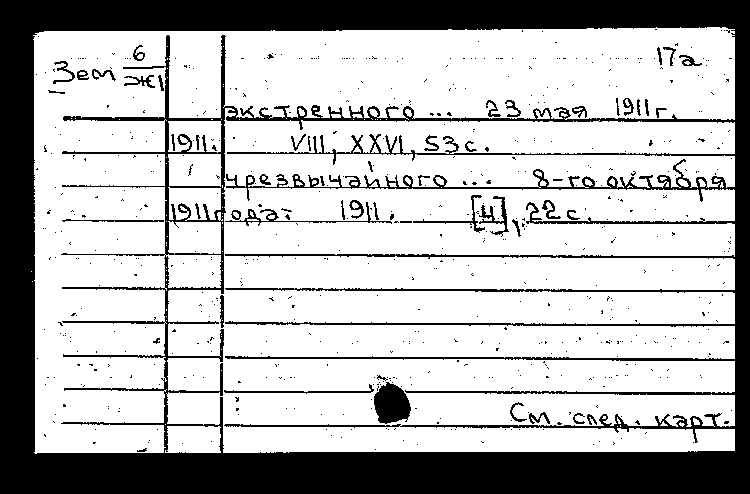 Зем 6/ЖI 17а
экстренного ... 23 мая 1911 г.
1911. VIII, XXVI, 53 с.
чрезвычайного ... 8-го октября
1911 года. 1911. [4], 22 с.
См. след. карт.